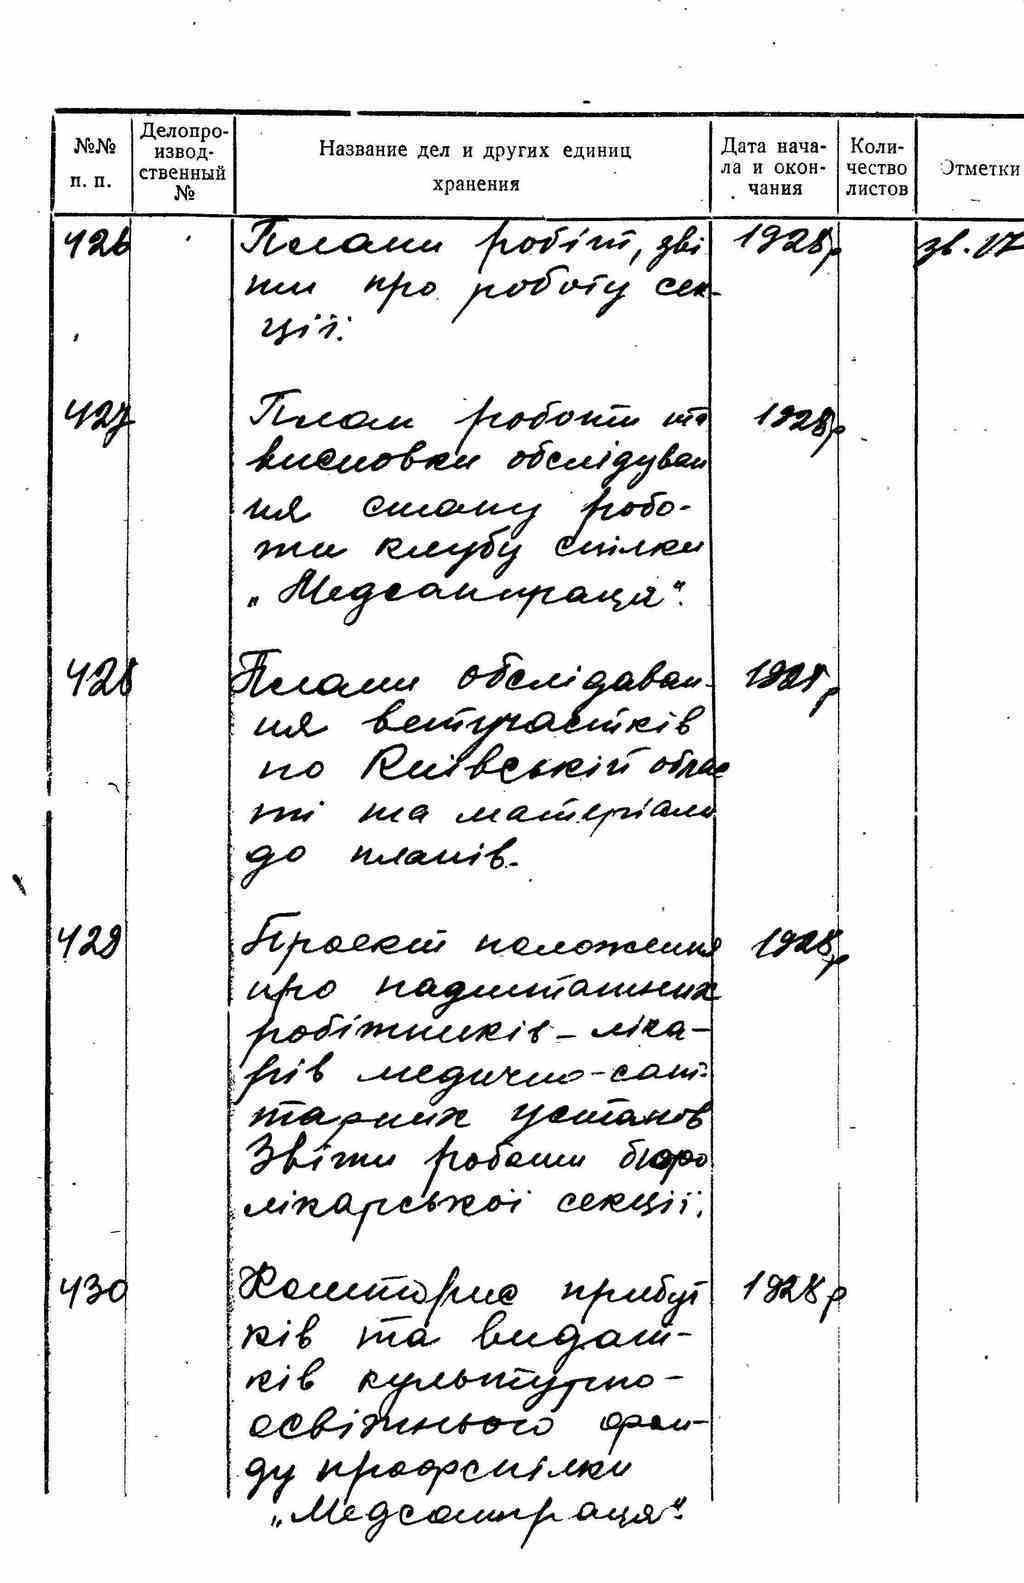 №№ п. п.
Делопро-
извод-
ственный
№
Название дел и других единиц
хранения
Дата нача-
ла и окон-
чания
Коли-
чество
листов
Отметки
426 Плани робіт, зві 1928р зв. 17
ти про роботу сек-
ціі.
427 План роботи та 1928р
висновки обслідуван
ня стану робо-
ти клубу спілки
„Медсанпраця".
428 Плани обслідаван- 1928р
ня ветучастків
по Київській облас
ті та матеріали
до планів.
429 Проект положення 1928р
про надштатних
робітників - ліка-
рів медично-сані-
тарних установ
Звіти роботи бюро
лікарської секції.
430 Кошторис прибут 1928р
ків та видат-
ків культурно-
освітнього фон-
ду профспілки
„Медсанпраця".